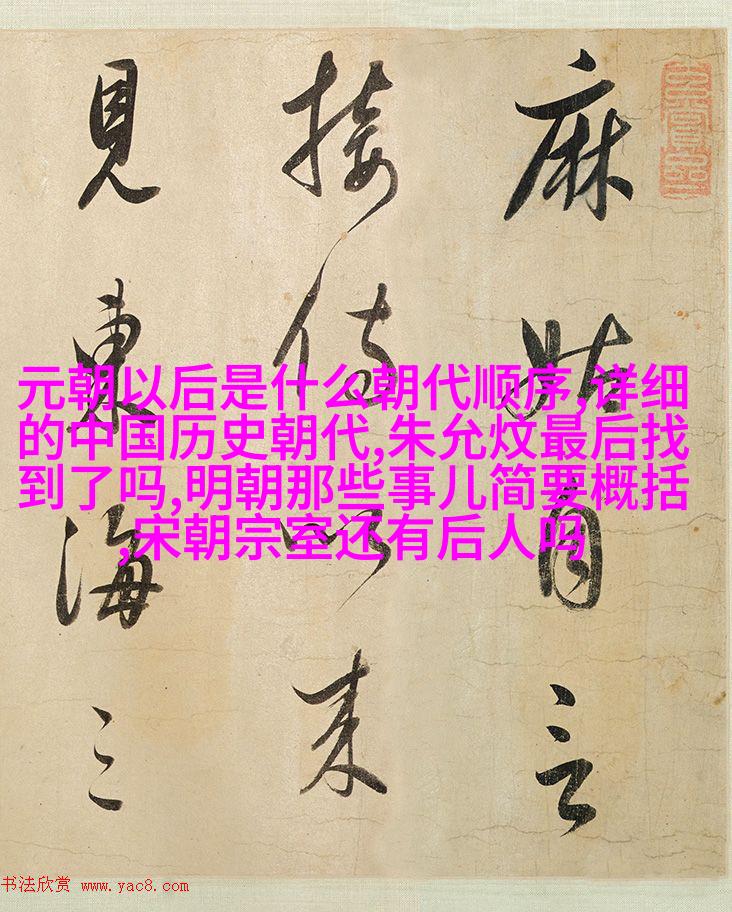 麻姑自言
接侍以来
見東海三
元朝以后是什么朝代顺序,详细
的中国历史朝代,朱允炆最后找
到了吗,明朝那些事儿简要概括
,宋朝宗室还有后人吗
书法欣赏 www.yac8.com